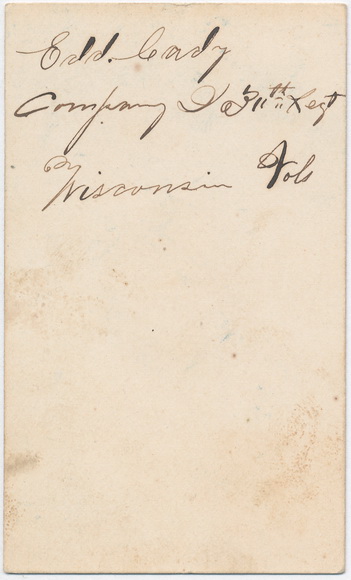 Edd. Cady
Company I Regt
Wisconsin Vols